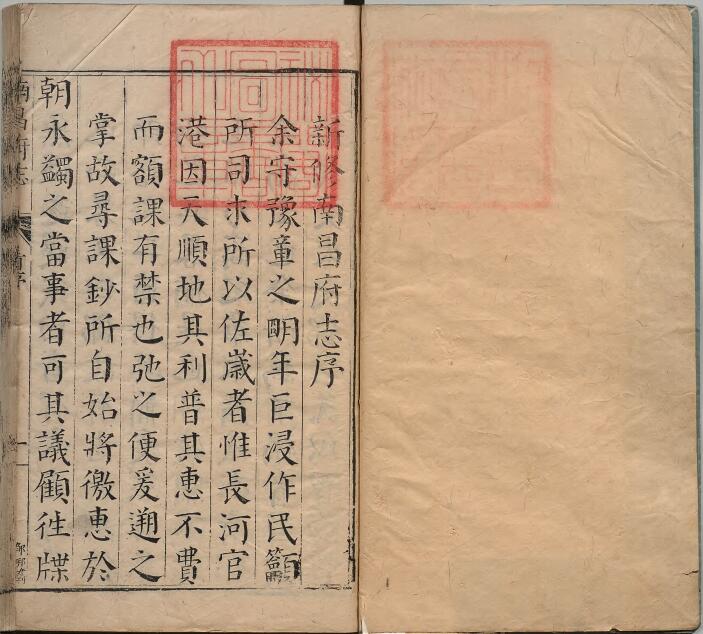 新修南昌府志序
余守豫章之明年巨浸作民籲
所司求所以佐歲者惟長河官
港因天順地其利普其惠不費
而額課有禁也弛之便爰遡之
掌故尋課鈔所自始將徼惠於
朝永蠲之當事者可其議顧徃牒
南昌府志
首序
一